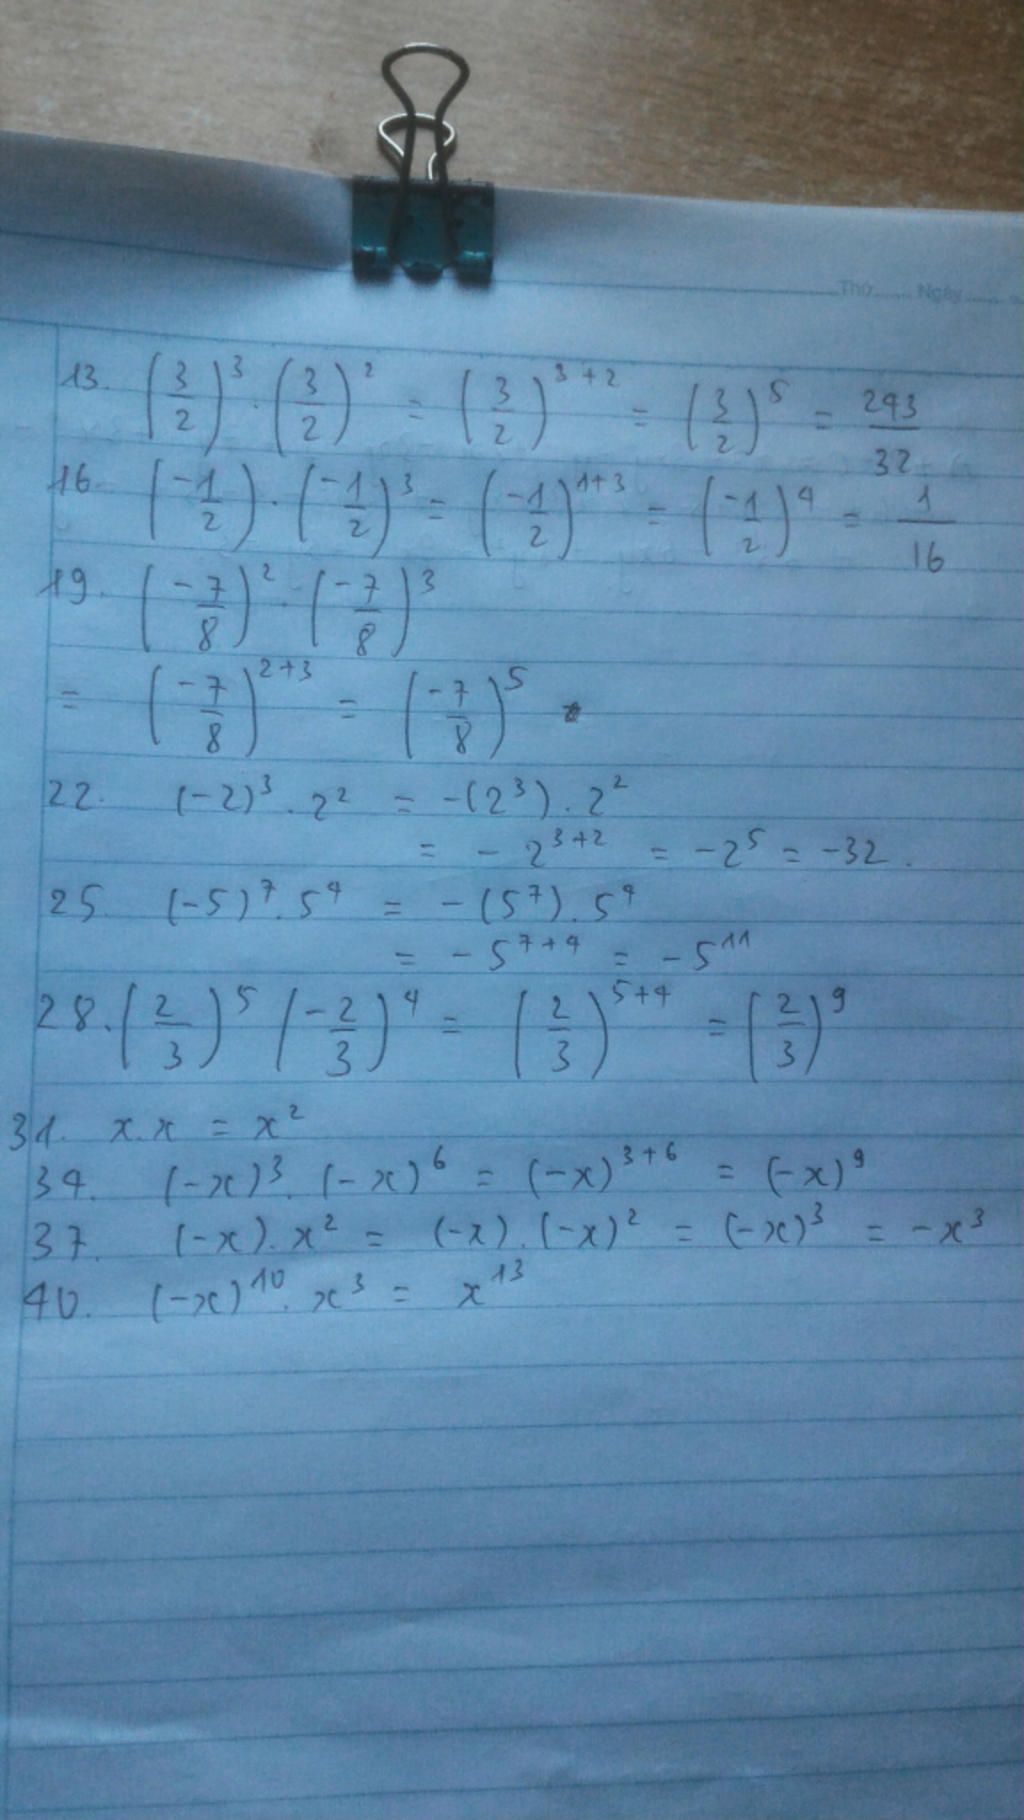 Thứ ........ Ngày ........
13. (3/2)³ . (3/2)² = (3/2)³⁺² = (3/2)⁵ = 243/32
16. (-1/2) . (-1/2)³ = (-1/2)¹⁺³ = (-1/2)⁴ = 1/16
19. (-7/8)² . (-7/8)³
= (-7/8)²⁺³ = (-7/8)⁵
22. (-2)³ . 2² = -(2³) . 2²
= - 2³⁺² = -2⁵ = -32.
25. (-5)⁷ . 5⁴ = -(5⁷) . 5⁴
= - 5⁷⁺⁴ = - 5¹¹
28. (2/3)⁵ (-2/3)⁴ = (2/3)⁵⁺⁴ = (2/3)⁹
31. x . x = x²
34. (-x)³ . (-x)⁶ = (-x)³⁺⁶ = (-x)⁹
37. (-x) . x² = (-x) . (-x)² = (-x)³ = -x³
40. (-x)¹⁰ . x³ = x¹³